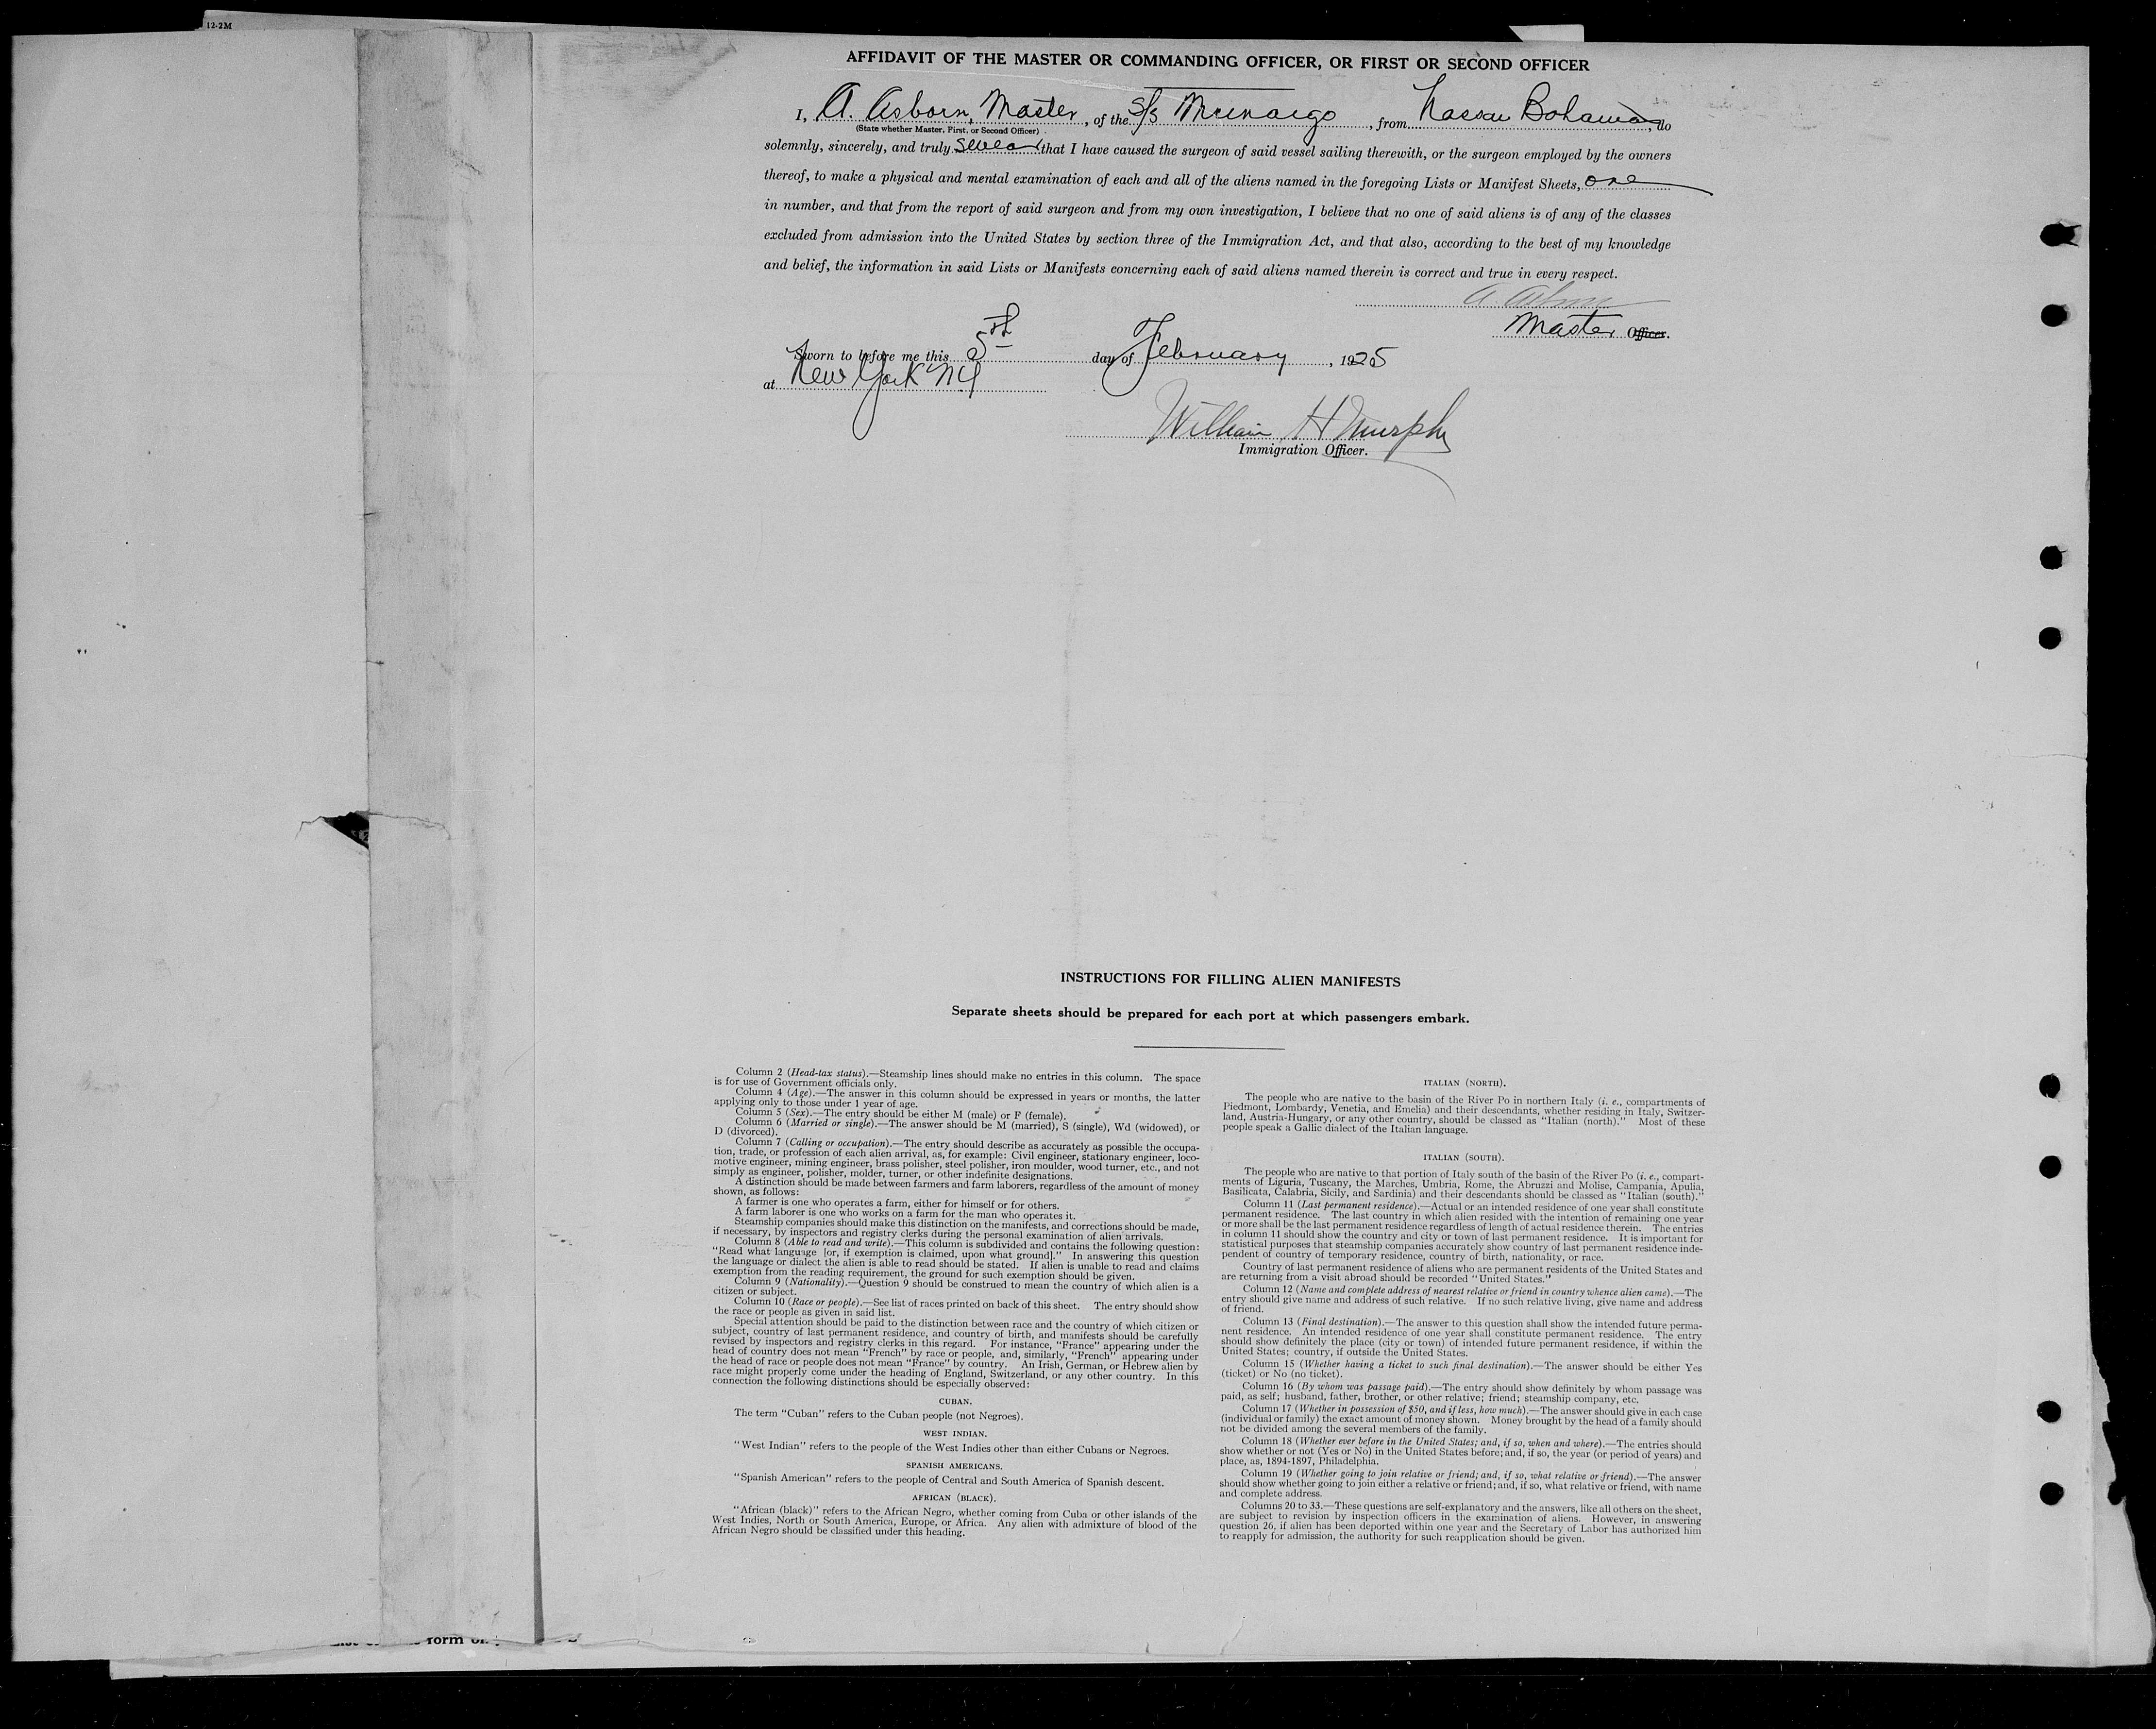 12-2M
AFFIDAVIT OF THE MASTER OR COMMANDING OFFICER, OR FIRST OR SECOND OFFICER
I, A. Asborn, Master, of the S/S Munargo, from Nassau Bahamas, do
(State whether Master, First, or Second Officer)
solemnly, sincerely, and truly swear that I have caused the surgeon of said vessel sailing therewith, or the surgeon employed by the owners
thereof, to make a physical and mental examination of each and all of the aliens named in the foregoing Lists or Manifest Sheets, one
in number, and that from the report of said surgeon and from my own investigation, I believe that no one of said aliens is of any of the classes
excluded from admission into the United States by section three of the Immigration Act, and that also, according to the best of my knowledge
and belief, the information in said Lists or Manifests concerning each of said aliens named therein is correct and true in every respect.
A. Asborn
Master Officer.
Sworn to before me this 5th day of February, 1925
at New York NY
William H Murphy
Immigration Officer.
INSTRUCTIONS FOR FILLING ALIEN MANIFESTS
Separate sheets should be prepared for each port at which passengers embark.
Column 2 (Head-tax status).—Steamship lines should make no entries in this column. The space
is for use of Government officials only.
Column 4 (Age).—The answer in this column should be expressed in years or months, the latter
applying only to those under 1 year of age.
Column 5 (Sex).—The entry should be either M (male) or F (female).
Column 6 (Married or single).—The answer should be M (married), S (single), Wd (widowed), or
D (divorced).
Column 7 (Calling or occupation).—The entry should describe as accurately as possible the occupa-
tion, trade, or profession of each alien arrival, as, for example: Civil engineer, stationary engineer, loco-
motive engineer, mining engineer, brass polisher, steel polisher, iron moulder, wood turner, etc., and not
simply as engineer, polisher, molder, turner, or other indefinite designations.
A distinction should be made between farmers and farm laborers, regardless of the amount of money
shown, as follows:
A farmer is one who operates a farm, either for himself or for others.
A farm laborer is one who works on a farm for the man who operates it.
Steamship companies should make this distinction on the manifests, and corrections should be made,
if necessary, by inspectors and registry clerks during the personal examination of alien arrivals.
Column 8 (Able to read and write).—This column is subdivided and contains the following question:
"Read what language [or, if exemption is claimed, upon what ground]." In answering this question
the language or dialect the alien is able to read should be stated. If alien is unable to read and claims
exemption from the reading requirement, the ground for such exemption should be given.
Column 9 (Nationality).—Question 9 should be construed to mean the country of which alien is a
citizen or subject.
Column 10 (Race or people).—See list of races printed on back of this sheet. The entry should show
the race or people as given in said list.
Special attention should be paid to the distinction between race and the country of which citizen or
subject, country of last permanent residence, and country of birth, and manifests should be carefully
revised by inspectors and registry clerks in this regard. For instance, "France" appearing under the
head of country does not mean "French" by race or people, and, similarly, "French" appearing under
the head of race or people does not mean "France" by country. An Irish, German, or Hebrew alien by
race might properly come under the heading of England, Switzerland, or any other country. In this
connection the following distinctions should be especially observed:
CUBAN.
The term "Cuban" refers to the Cuban people (not Negroes).
WEST INDIAN.
"West Indian" refers to the people of the West Indies other than either Cubans or Negroes.
SPANISH AMERICANS.
"Spanish American" refers to the people of Central and South America of Spanish descent.
AFRICAN (BLACK).
"African (black)" refers to the African Negro, whether coming from Cuba or other islands of the
West Indies, North or South America, Europe, or Africa. Any alien with admixture of blood of the
African Negro should be classified under this heading.
ITALIAN (NORTH).
The people who are native to the basin of the River Po in northern Italy (i. e., compartments of
Piedmont, Lombardy, Venetia, and Emelia) and their descendants, whether residing in Italy, Switzer-
land, Austria-Hungary, or any other country, should be classed as "Italian (north)." Most of these
people speak a Gallic dialect of the Italian language.
ITALIAN (SOUTH).
The people who are native to that portion of Italy south of the basin of the River Po (i. e., compart-
ments of Liguria, Tuscany, the Marches, Umbria, Rome, the Abruzzi and Molise, Campania, Apulia,
Basilicata, Calabria, Sicily, and Sardinia) and their descendants should be classed as "Italian (south)."
Column 11 (Last permanent residence).—Actual or an intended residence of one year shall constitute
permanent residence. The last country in which alien resided with the intention of remaining one year
or more shall be the last permanent residence regardless of length of actual residence therein. The entries
in column 11 should show the country and city or town of last permanent residence. It is important for
statistical purposes that steamship companies accurately show country of last permanent residence inde-
pendent of country of temporary residence, country of birth, nationality, or race.
Country of last permanent residence of aliens who are permanent residents of the United States and
are returning from a visit abroad should be recorded "United States."
Column 12 (Name and complete address of nearest relative or friend in country whence alien came).—The
entry should give name and address of such relative. If no such relative living, give name and address
of friend.
Column 13 (Final destination).—The answer to this question shall show the intended future perma-
nent residence. An intended residence of one year shall constitute permanent residence. The entry
should show definitely the place (city or town) of intended future permanent residence, if within the
United States; country, if outside the United States.
Column 15 (Whether having a ticket to such final destination).—The answer should be either Yes
(ticket) or No (no ticket).
Column 16 (By whom was passage paid).—The entry should show definitely by whom passage was
paid, as self; husband, father, brother, or other relative; friend; steamship company, etc.
Column 17 (Whether in possession of $50, and if less, how much).—The answer should give in each case
(individual or family) the exact amount of money shown. Money brought by the head of a family should
not be divided among the several members of the family.
Column 18 (Whether ever before in the United States; and, if so, when and where).—The entries should
show whether or not (Yes or No) in the United States before; and, if so, the year (or period of years) and
place, as, 1894-1897, Philadelphia.
Column 19 (Whether going to join relative or friend; and, if so, what relative or friend).—The answer
should show whether going to join either a relative or friend; and, if so, what relative or friend, with name
and complete address.
Columns 20 to 33.—These questions are self-explanatory and the answers, like all others on the sheet,
are subject to revision by inspection officers in the examination of aliens. However, in answering
question 26, if alien has been deported within one year and the Secretary of Labor has authorized him
to reapply for admission, the authority for such reapplication should be given.
form